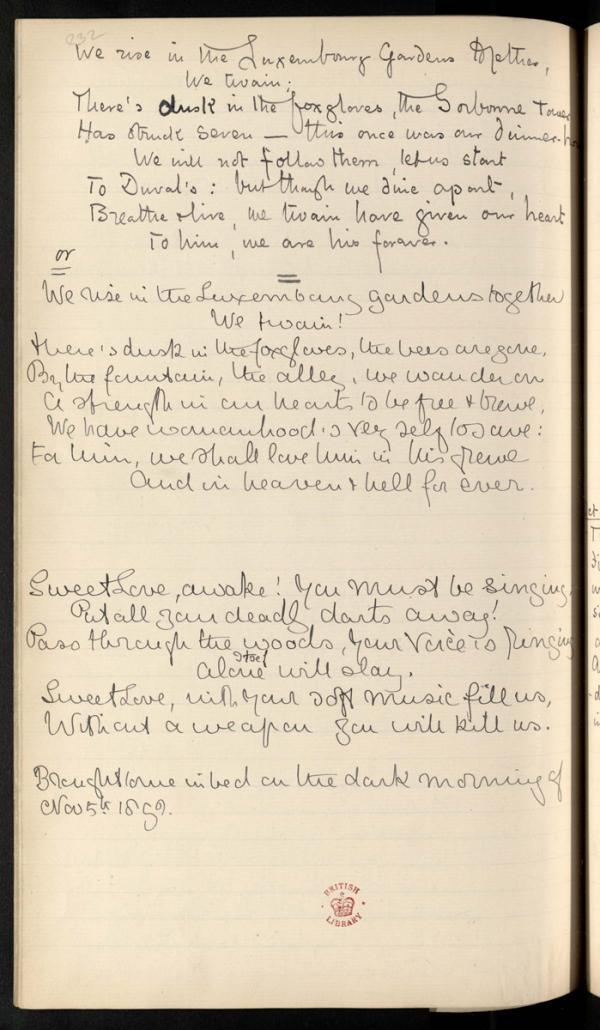 232
We rise in the Luxembourg Gardens Mother,
We twain;
There's dusk in the foxgloves, the Sorbonne Tower
Has struck seven — this once was our dinner-
We will not follow them, let us start
To Duval's: but though we dine apart,
Breathe & live, we twain have given our heart
To him, we are his forever.
or
We rise in the Luxembourg gardens together
We twain!
There's dusk in the foxgloves, the bees are gone,
By the fountain, the alley, we wander on
A strength in our hearts to be free & brave,
We have womanhood's very self to save:
For him, we shall love him in his grave
And in heaven & hell for ever.
Sweet Love, awake! You must be singing,
Put all your deadly darts away!
Pass through the woods, your voice is ringing
alone will slay.
Sweet Love, with your soft music fill us,
Without a weapon you will kill us.
Brought to me in bed on the dark morning of
Nov 5th 18
BRITISH
LIBRARY